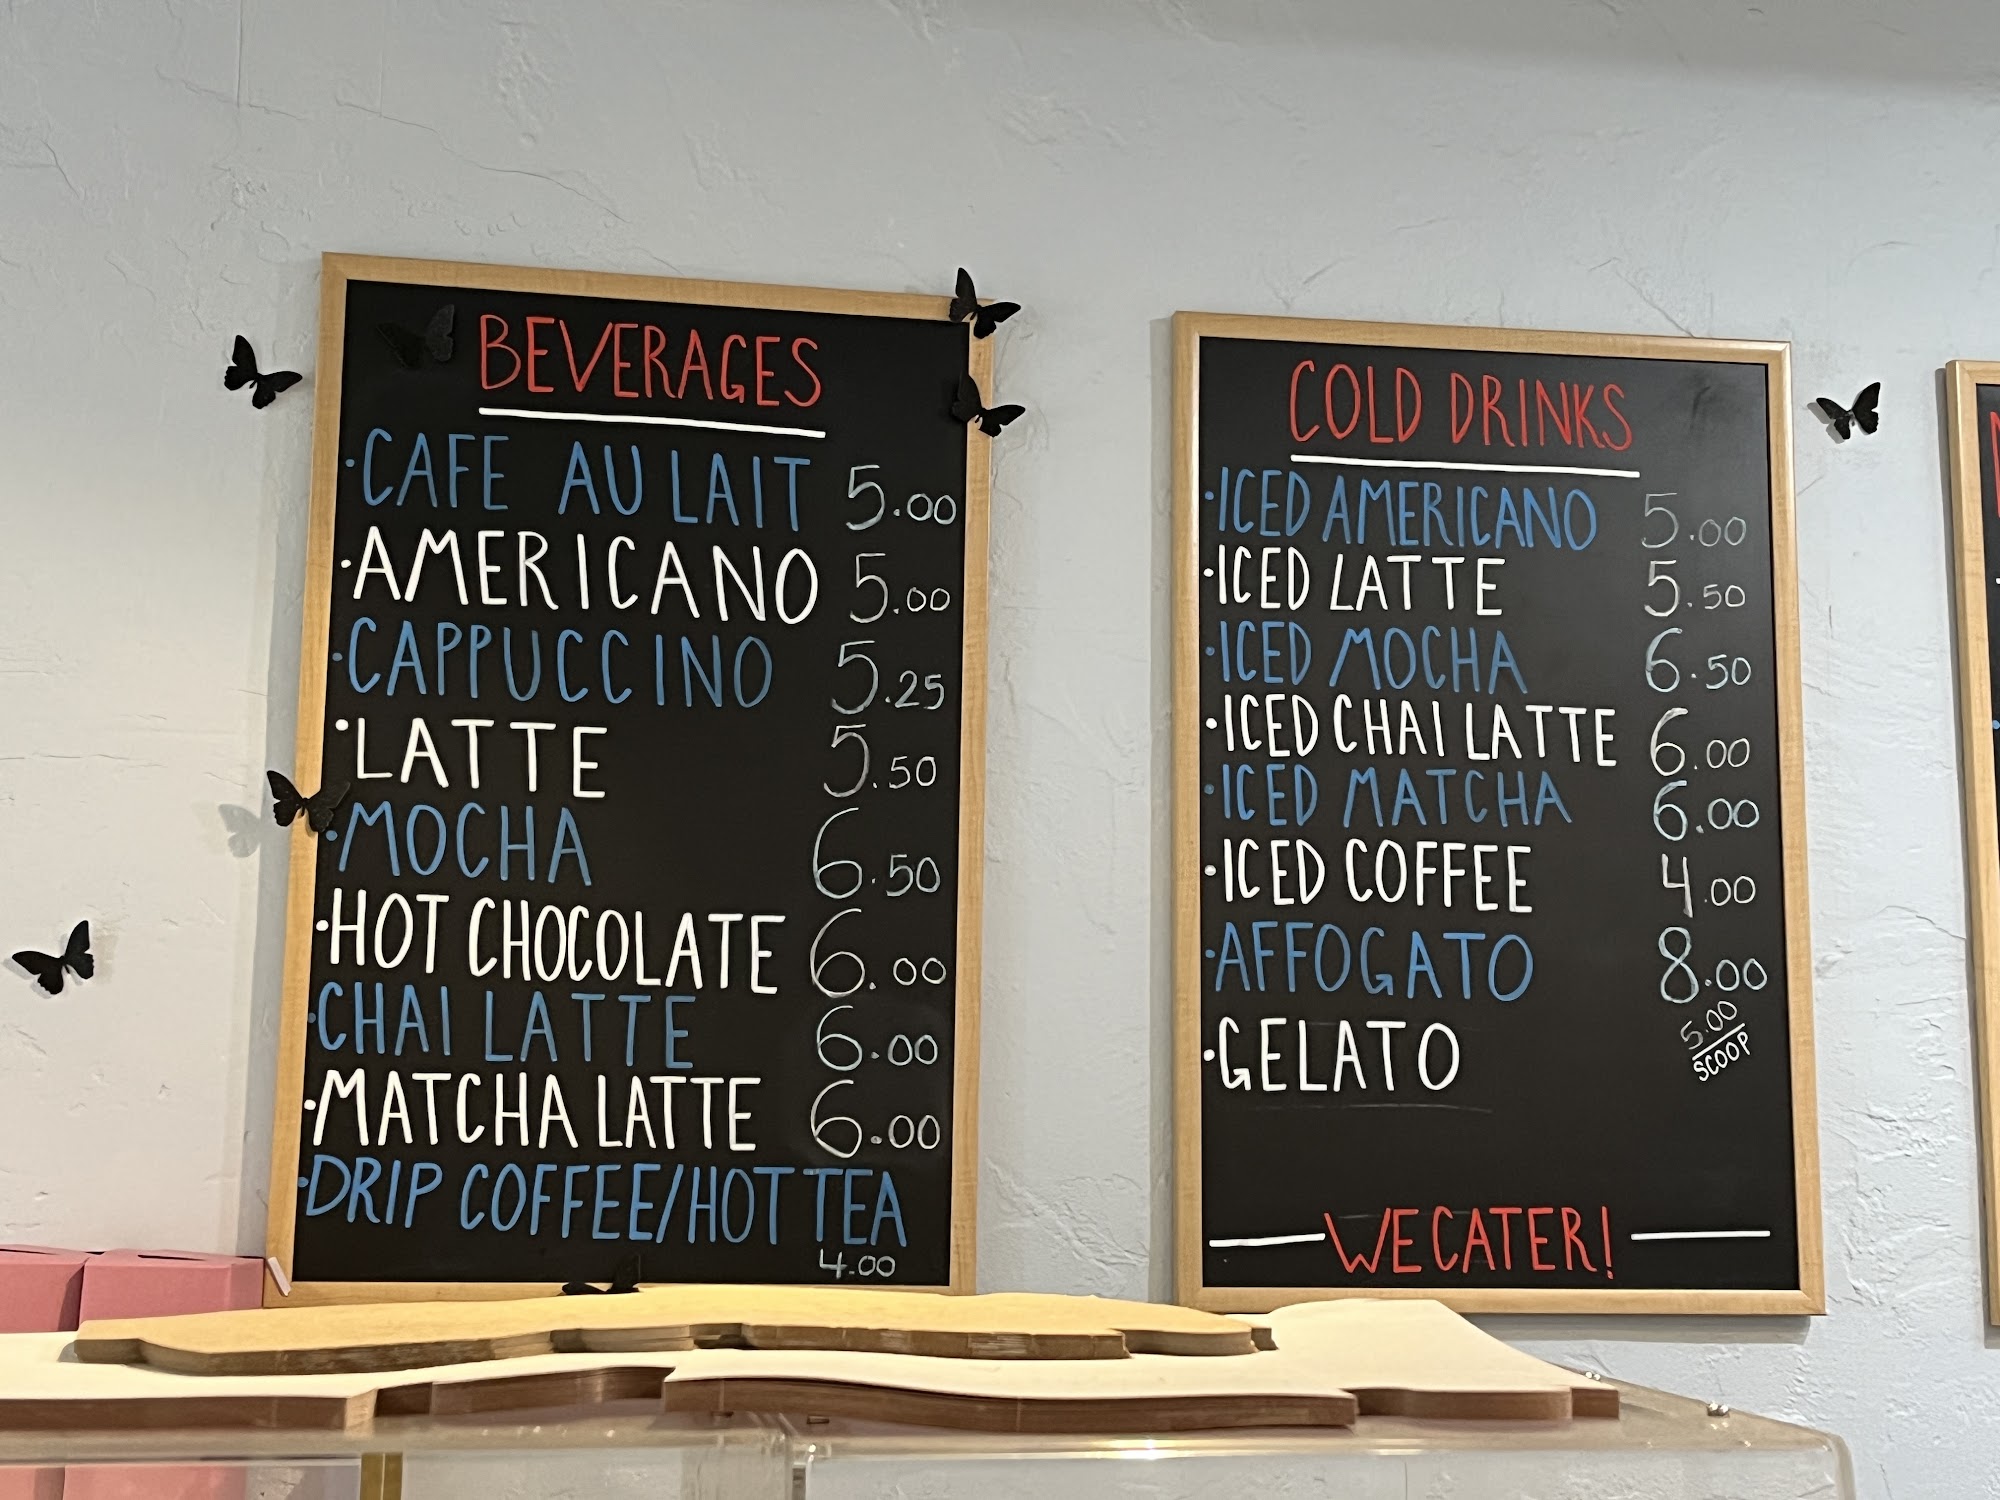 BEVERAGES
· CAFE AU LAIT 5.00
· AMERICANO 5.00
· CAPPUCCINO 5.25
· LATTE 5.50
· MOCHA 6.50
· HOT CHOCOLATE 6.00
· CHAI LATTE 6.00
· MATCHA LATTE 6.00
· DRIP COFFEE/HOT TEA
4.00
COLD DRINKS
· ICED AMERICANO 5.00
· ICED LATTE 5.50
· ICED MOCHA 6.50
· ICED CHAI LATTE 6.00
· ICED MATCHA 6.00
· ICED COFFEE 4.00
· AFFOGATO 8.00
· GELATO 5.00
SCOOP
WE CATER!